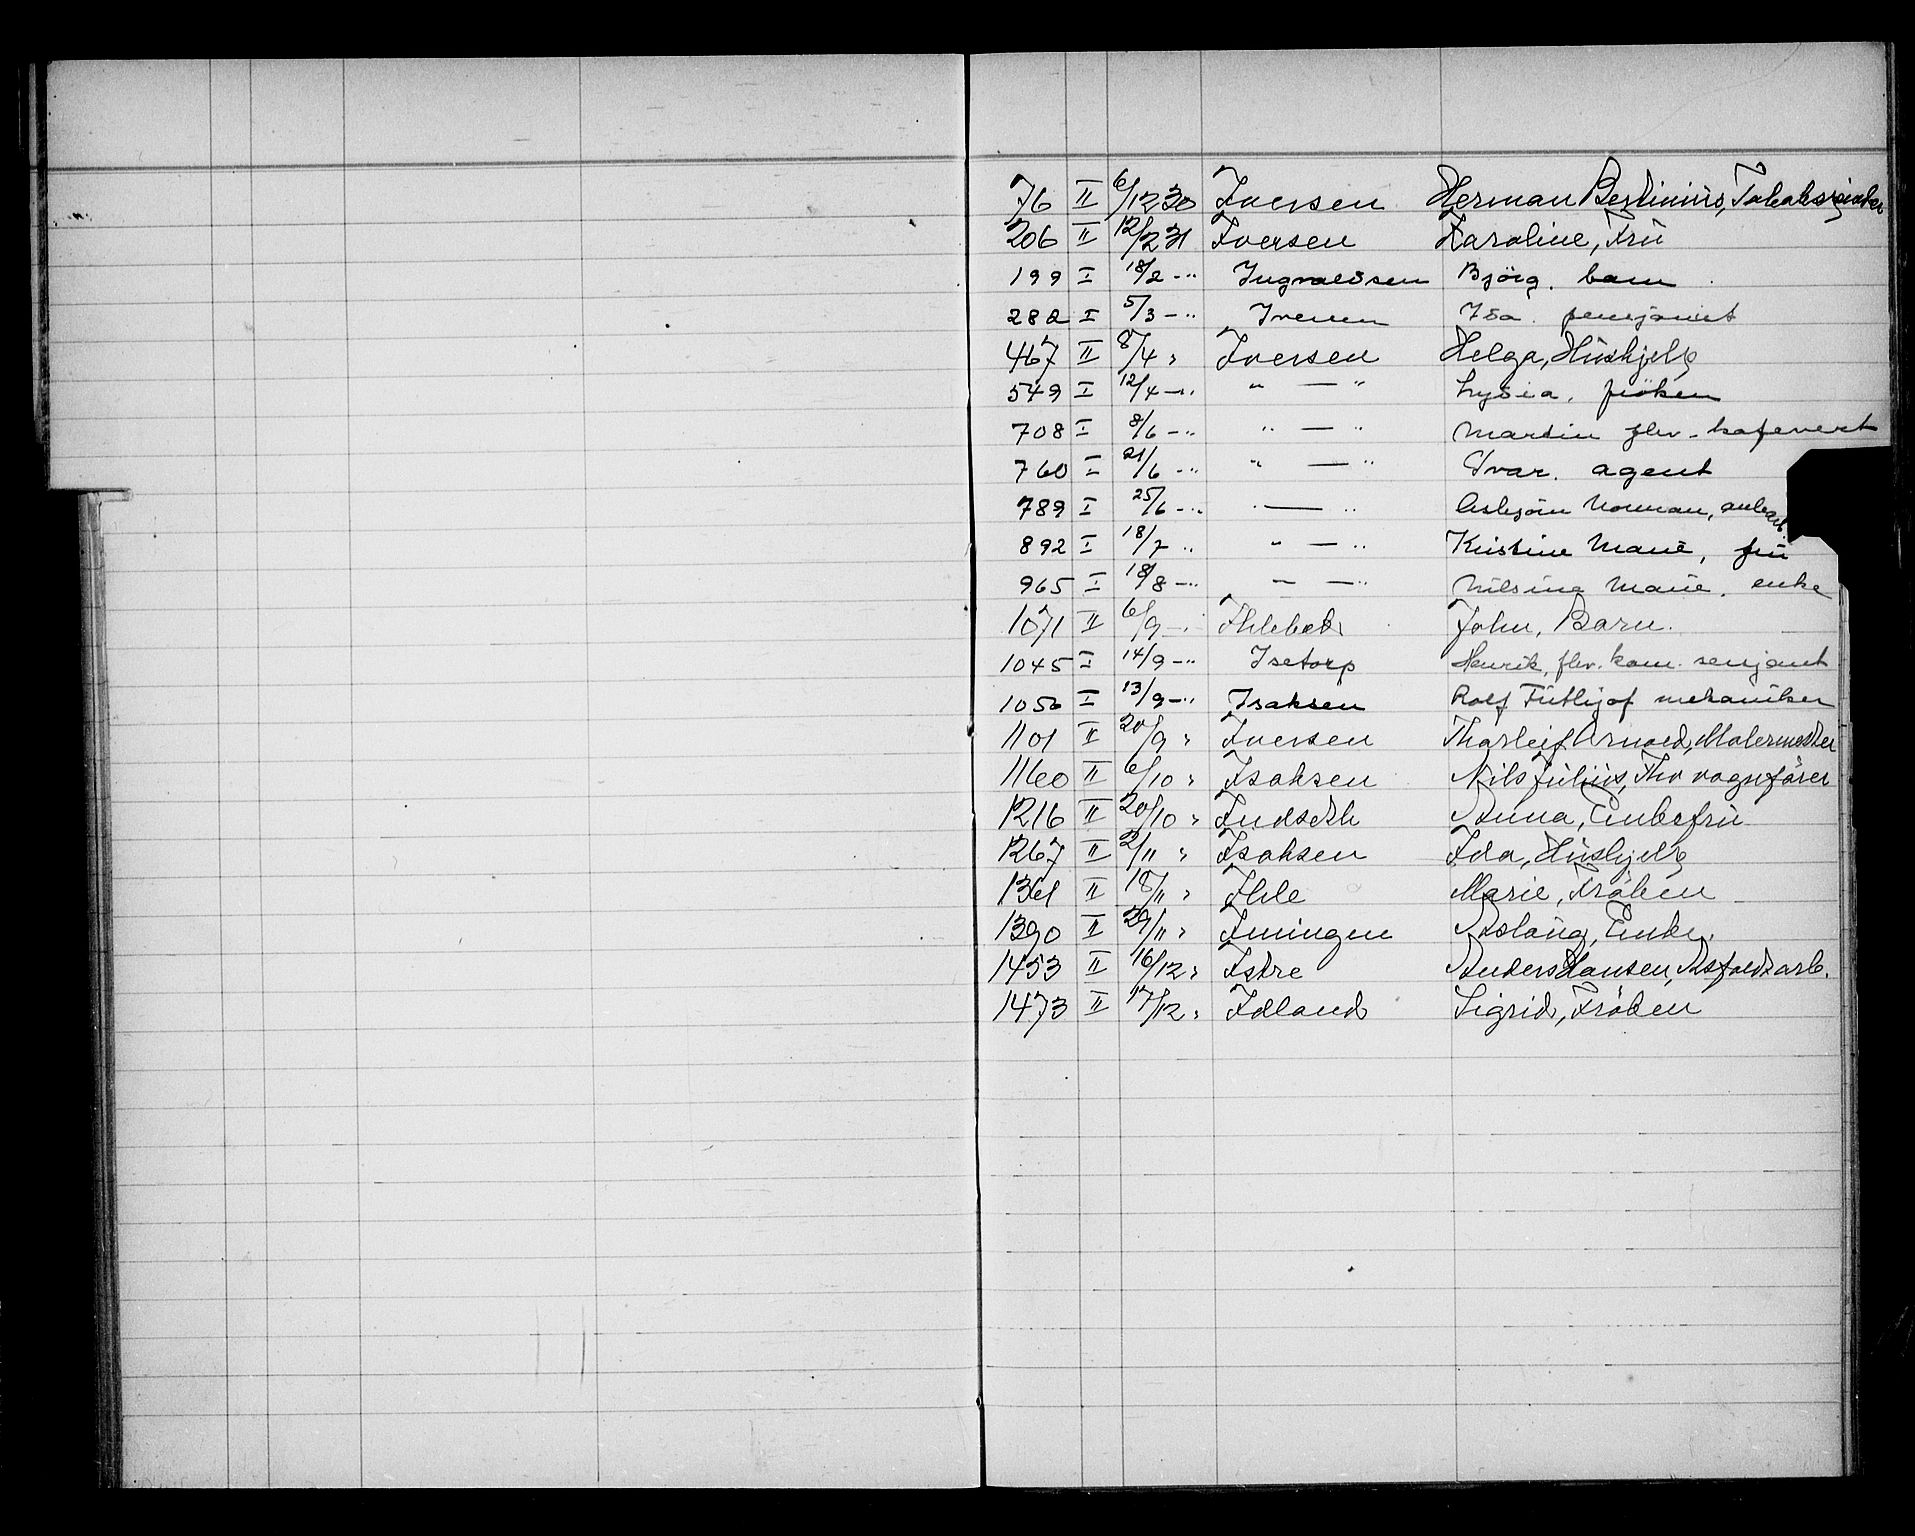 76 II 6/12 30 Iversen Herman Bertinius,
206 II 12/2 31 Iversen Karoline, Frü
199 I 18/2 -" Ingvaldsen Bjørg. barn
282 I 5/3 -" Iversen Isa. pensjonist
467 II 8/4 " Iversen Helga, Hüshjelp
549 I 12/4 -" " — " Lydia, frøken
708 I 8/6 -" " — " Martin fhv. kafevert
760 I 21/6 -" " — " Ivar. agent
789 I 25/6 -" " — " Asbjørn Norman,
892 I 18/7 " " — " Kristine Marie, frü
965 I 18/8 -" " — " Nilsine Marie. enke
1071 II 6/9 -" Ihlebek John, Barn.
1045 I 14/9 -" Isetorp Henrik, fhv. kom. sersjant
1056 I 13/9 -" Isaksen Rolf Frithjof mekaniker
1101 II 20/9 " Iversen Thorleif Arnold, Malermester
1160 II 6/10 " Isaksen Nils Jülius, Fhv vognfører
1216 II 20/10 " Indseth Anna, Enkefrü
1267 II 2/11 " Isaksen Ida, Hüshjelp
1361 II 18/11 " Ihle Marie, Frøken
1390 II 29/11 " Imingen Aslaüg, Enke.
1453 II 16/12 " Istre Anders Hansen, Asfaldtarb.
1473 II 17/12 " Idland Sigrid, Frøken